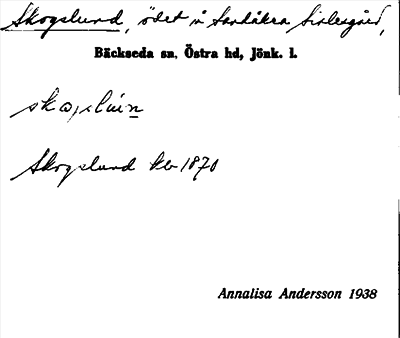 Skogslund, ödet u Sandåkra Sirlesgård,
Bäckseda sn, Östra hd, Jönk. l.
Skogslund kb 1870
Annalisa Andersson 1938